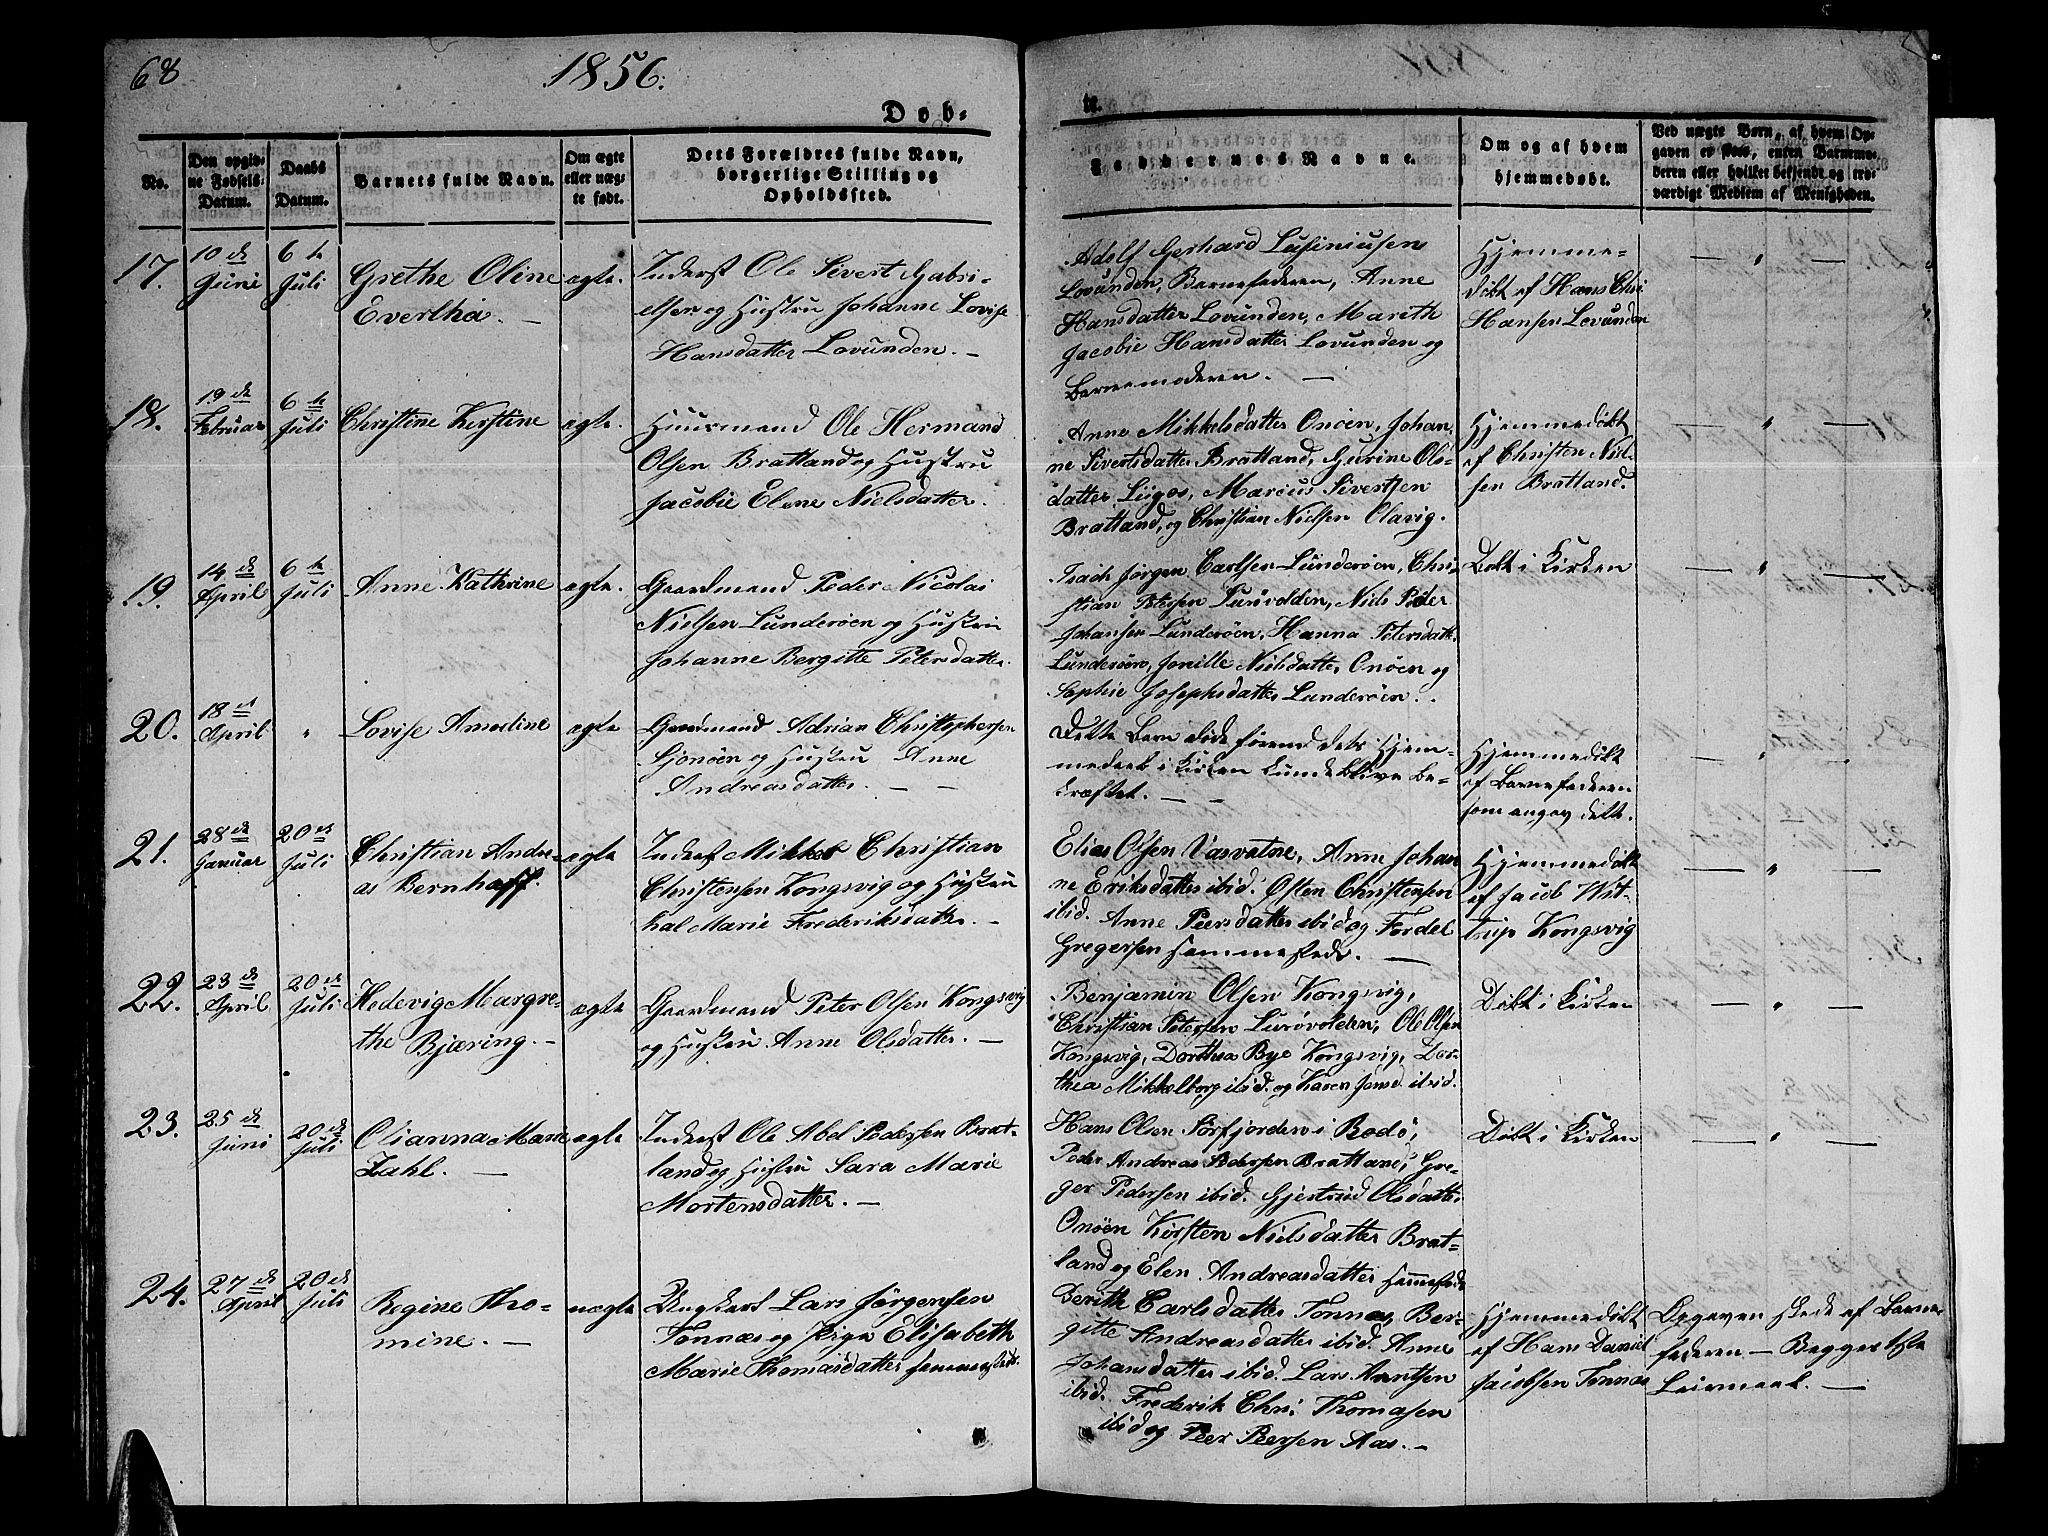 68
1856.
Døb-
te.
No.
Den opgiv-
ne Fødsels-
Datum.
Daabs
Datum.
Barnets fulde Navn.
Om ægte
eller uæg-
te født.
Dets Forældres fulde Navn,
borgerlige Stilling og
Opholdssted.
Faddernes Navne.
Om og af hvem
hjemmedøbt.
Ved uægte Børn, af hvem Op-
gaven er skeet, enten Barnemo-
deren eller hvilket bekjendt og tro-
værdigt Medlem af Menigheden.
17.
10de
Juni
6te
Juli
Grethe Oline
Evertha. —
ægte.
Inderst Ole Sivert Gabri-
elsen og Hustru Johanne Lovise
Hansdatter Lovunden. —
Adolf Gerhard
Lovunden, Barnefaderen, Anne
Hansdatter Lovunden, Mareth
Jacobie Hansdatter Lovunden og
Barnemoderen. —
Hjemme-
døbt af Hans Chri
Hansen Lovunden
— " —
18.
19de
Februar
6te
Juli
Christine Kirstine
ægte.
Huusmand Ole Hermand
Olsen Brattland og Hustru
Jacobie Elene Nielsdatter.
Anne Mikkelsdatter Onøen, Johan
ne Sivertsdatter Brattland, Gurine Ols-
datter Liigos, Marcus Sivertsen
Brattland, og Christian Nielsen Olavig.
Hjemmedøbt
af Christen Niel-
sen Bratland.
— " —
19.
14de
April
6te
Juli
Anne Kathrine
ægte.
Gaardmand Peder Nicolai
Nielsen Lunderøen og Hustru
Johanne Bergitte Petersdatter.
Isach Jørgen Carlsen Lunderøen, Chri-
stian Petersen Lurøvolden, Niels Peder
Johansen Lunderøen, Hanna Petersdatt.
Lunderøen, Jonille Nielsdatter, Onøen og
Sophie Josephsdatter Lunderøen.
Døbt i Kirken
— " —
20.
18de
April
"
Lovise Amodine
ægte
Gaardmand Adrian Christophersen
Sjonøen og Hustru Anne
Andreasdatter. — —
Dette Barn døde førend dets Hjem-
medaab i Kirken kunde blive be-
kræftet. — —
Hjemmedøbt
af Barnefaderen
som angav dette.
— " —
21.
28de
Januar
20de
Juli
Christian Andre-
as Bernhoff.
ægte
Inderst Mikkel Christian
Christensen Kongsvig og Hustru
hal Marie Frederiksdatter. —
Elias Olsen Vasvatne, Anne Johan
ne Eriksdatter ibid. Østen Christensen
ibid. Anne Peersdatter ibid og Fordel
Gregersen sammesteds. —
Hjemmedøbt
af Jacob Wit-
trup Kongsvig
— " —
22.
23de
April
20de
Juli
Hedevig Margre-
the Bjæring. —
ægte
Gaardmand Peter Olsen Kongsvig
og Hustru Anne Olsdatter. —
Benjamin Olsen Kongsvig,
Christian Petersen Lurøvolden, Ole Olsen
Kongsvig, Dorthea Bye Kongsvig, Dor-
thea Mikkelborg ibid. og Karen Jonsd. ibid.
Døbt i Kirken
— " —
23.
25de
Juni
20de
Juli
Olianna Marie
Zahl. —
ægte
Inderst Ole Abel Pedersen Brat-
land og Hustru Sara Marie
Mortensdatter. —
Hans Olsen Sørfjorden i Bodø,
Peder Andreas Pedersen Bratland, Gre-
ger Pedersen ibid. Gjertrud Olsdatter
Onøen Kirsten Nielsdatter Brat-
land og Elen Andreasdatter sammesteds
Døbt i Kirken
— " —
24.
27de
April
20de
Juli
Regine Tho-
mine. —
uægte
Ungkarl Lars Jørgensen
Tonnæs og Pige Elisabeth
Marie Thomasdatter sammesteds.
Berith Carlsdatter Tonnæs, Ber-
gitte Andreasdatter ibid. Anne
Johansdatter ibid. Lars Arntsen
ibid. Frederik Chri: Thomasen
ibid og Peer Peersen Aas. —
Hjemmedøbt
af Hans Daniel
Jacobsen Tonnæs
Opgaven skede af Barne-
faderen — Begges 1ste
Leiermaal. —